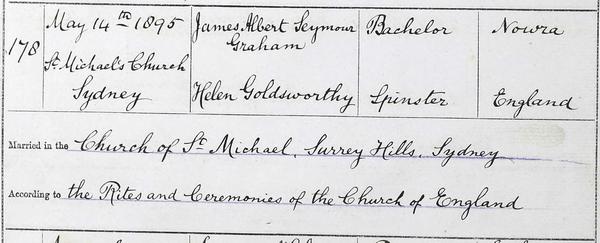 178
May 14th 1895
St Michael's Church
Sydney
James Albert Seymour
Graham
Helen Goldsworthy
Bachelor
Spinster
Nowra
England
Married in the Church of St Michael, Surrey Hills, Sydney
According to the Rites and Ceremonies of the Church of England